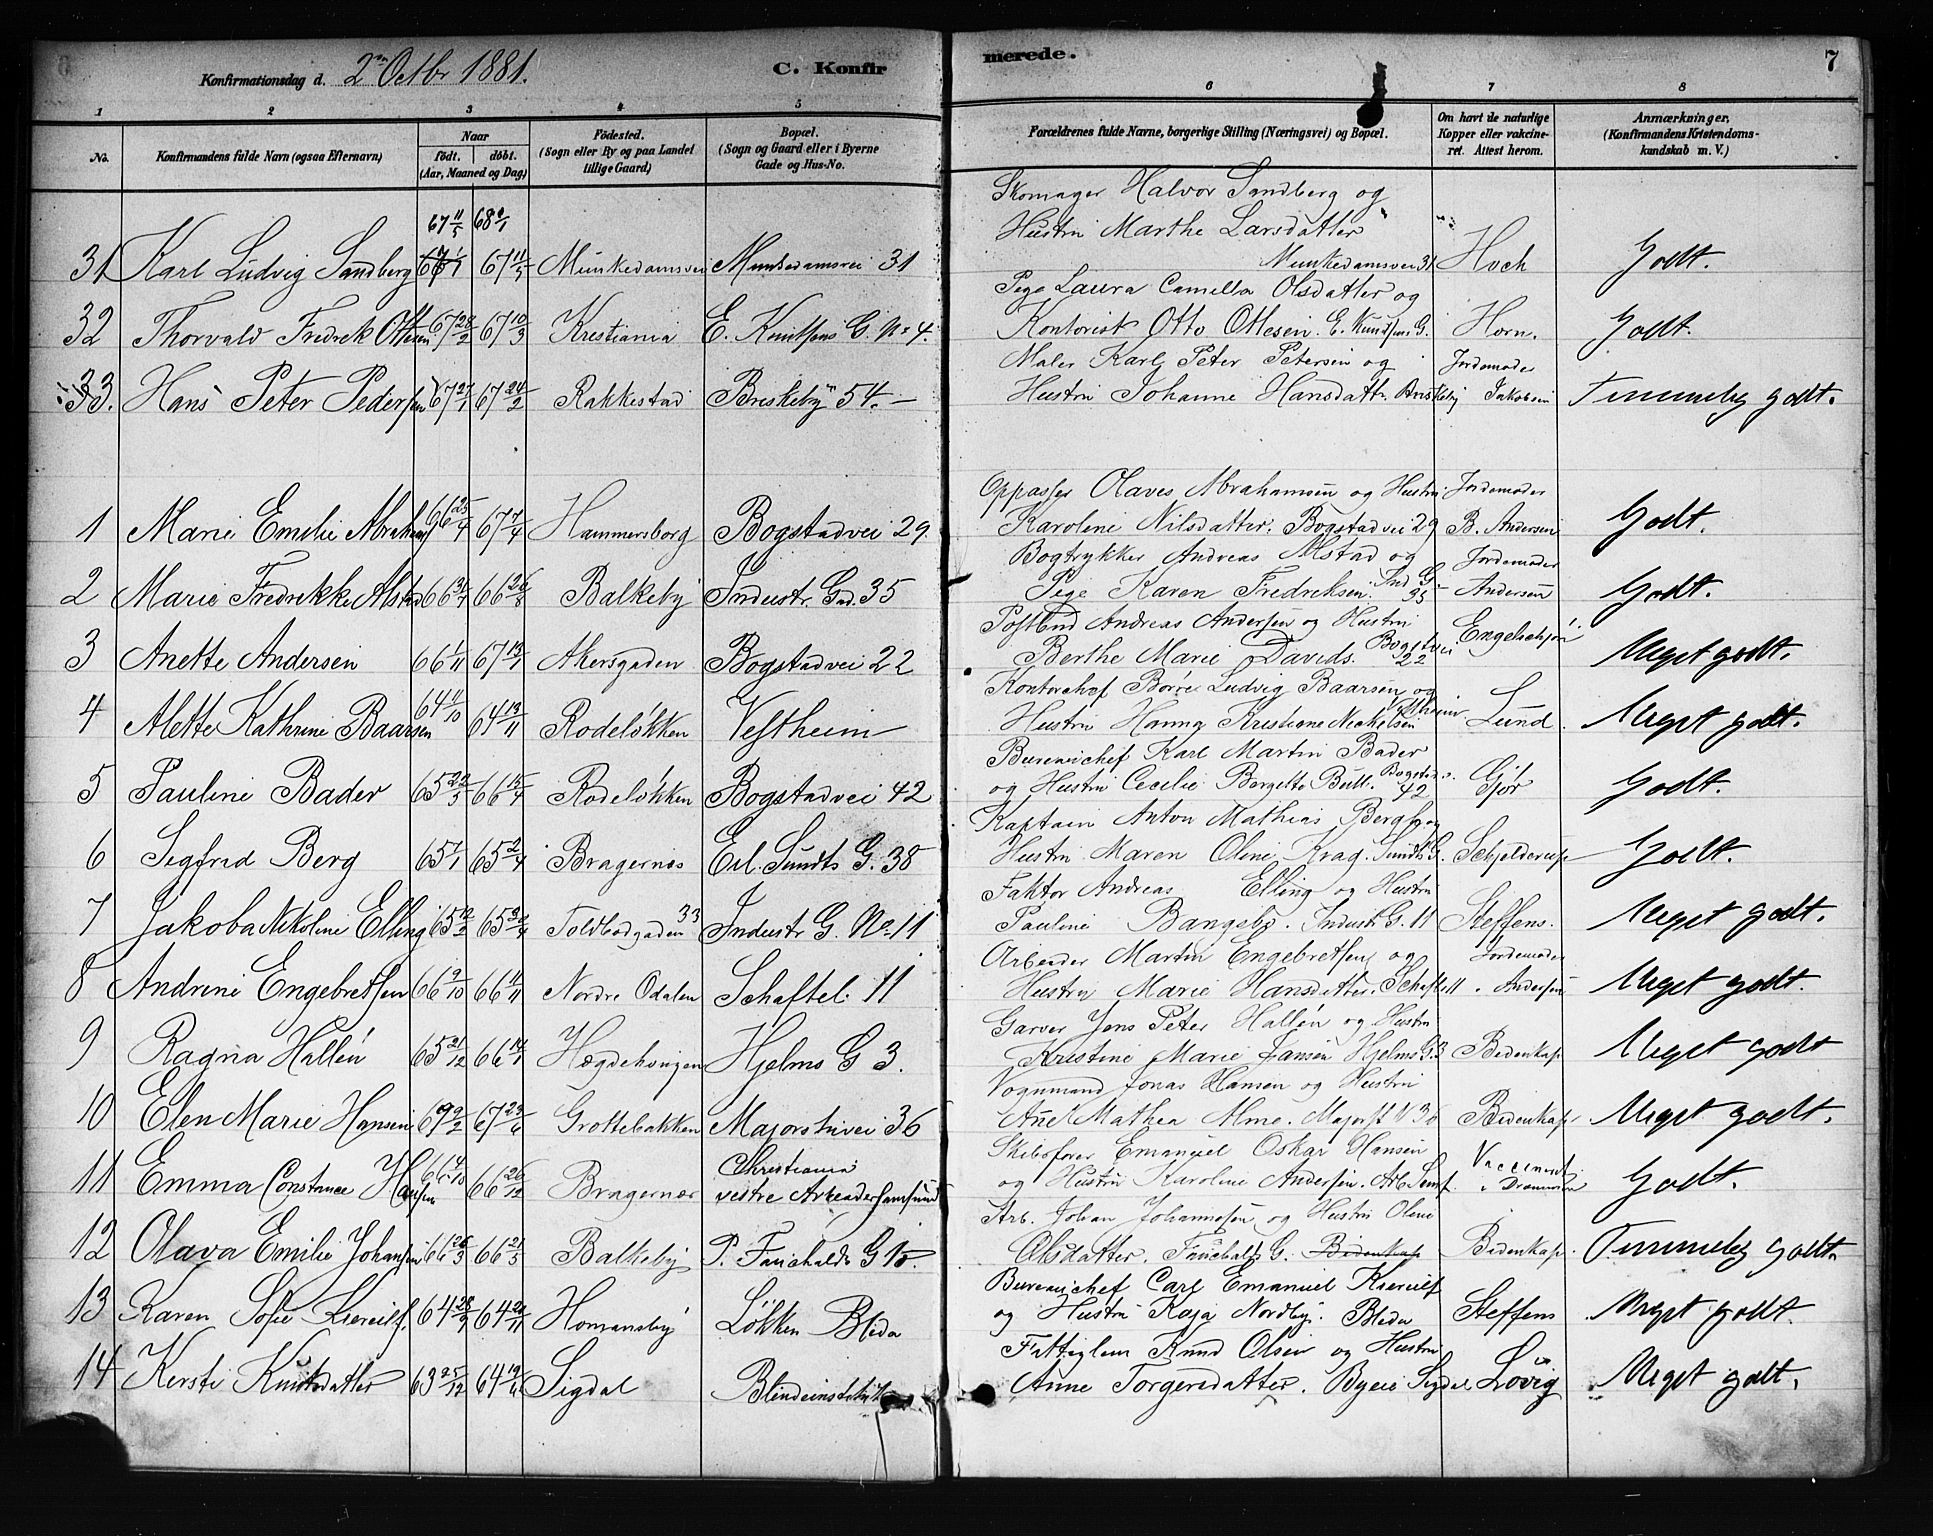 Konfirmationsdag d. 2den Octbr 1881.
C. Konfirmerede.
7
1 2 3 4 5 6 7 8
No. Konfirmandens fulde Navn (ogsaa Efternavn) Naar födt. döbt. (Aar, Maaned og Dag) Födested. (Sogn eller By og paa Landet tillige Gaard) Bopæl. (Sogn og Gaard eller i Byerne Gade og Hus-No. Forældrenes fulde Navne, borgerlige Stilling (Næringsvei) og Bopæl. Om havt de naturlige Kopper eller vakcineret. Attest herom. Anmærkninger, (Konfirmandens Kristendomskundskab m. V.)
67 11/5 68 6/1
Skomager Halvor Sandberg og
Hustru Marthe Larsdatter
31 Karl Ludvig Sandberg 67 11/5 Munkedamsvei Munkedamsvei 31 Munkedamsvei 31 Hoch Godt.
Pige Laura Camilla Olsdatter og
32 Thorvald Fredrek Ottesen 67 28/2 67 10/3 Kristiania E. Knutsens G. No 4. Kontorist Otto Ottesen. E. Knudsens G. Horn. Godt.
Maler Karl Peter Petersen og Jordemoder
33. Hans Peter Pedersen 67 27/1 67 24/2 Rakkestad Briskeby 54. Hustru Johanne Hansdatter Briskeby Jakobsen Temmelig godt.
Oppasser Olaves Abrahamsen og Hustru Jordemoder
1 Marie Emilie Abraham 66 25/4 67 7/4 Hammersborg Bogstadvei 29. Karoline Nilsdatter. Bogstadvei 29 B. Andersen Godt.
Bogtrykker Andreas Alstad og Jordemoder
2 Marie Fredrikke Alstad 66 31/7 66 26/8 Balkeby Industr. Gad. 35 Pige Karen Fredriksen. Ind. G. 35 Andersen Godt.
Postbud Andreas Andersen og Hustru
3 Anette Andersen 66 1/11 67 13/1 Akersgaden Bogstadvei 22 Berthe Marie Davids. Bogstvei 22 Engelschjøn Meget godt.
Kontorchef Børre Ludvig Baarsen og
4 Alette Kathrine Baarsen 64 4/10 64 13/11 Rodeløkken Vestheim Hustru Hanna Kristiane Mechelsen Vestheim Lund. Meget godt.
Bureauchef Karl Martin Bader
5 Pauline Bader 65 22/5 66 15/4 Rodeløkken Bogstadvei 42 og Hustru Cecilie Bergette Bull. Bogstadv. 42 Gjør Godt.
Kaptain Anton Mathias Berg og
6 Sigfrid Berg 65 1/1 65 2/4 Bragernes Eil. Sundts G. 38 Hustru Maren Oline Krag. Sundts G. Schjelderup Godt.
Faktor Andreas Elling og Hustru
7 Jakoba Nikoline Elling 65 12/2 Toldbodgaden 33 Industr G. No. 11 Pauline Bangsbo. Industr G. 11 Steffens. Meget godt.
Arbeider Martin Engebretsen og Jordemoder
8 Andrine Engebretsen 66 9/10 66 4/11 Nordre Odalen Schaftel. 11 Hustru Marie Hansdatter. Schaftel 11. Andersen Meget godt.
Garver Jens Peter Hallén og Hustru
9 Ragna Hallén 65 21/12 66 14/1 Hægdehougen Hjelms G 3. Kristine Marie Jansen Hjelms G. 3 Bidenkap Meget godt
Vognmand Jonas Hansen og Hustru
10 Elen Marie Hansen 67 23/6 Grottebakken Majorstuvei 36 Ane Mathea Alme. Majorst V 36 Bidenkap. Meget godt.
Skibsfører Emanuel Oskar Hansen
11 Emma Constance Hansen 66 4/10 66 26/12 Bragernes Christiania vestre Arbeidersamfund og Hustru Karoline Andersen. Arb Samf. Vaccineret i Drammen Godt.
Arb. Johan Johannesen og Hustru Oline
12 Olava Emilie Johansen 66 26/3 66 21/5 Balkeby P. Fauchalds G 10. Olsdatter. Fauchalds G. Bidenkap Bidenkap. Temmelig godt.
Bureauchef Carl Emanuel Kierulf
13 Karen Sofie Kierulf. 64 28/9 64 20/11 Homansby Løkken Blida og Hustru Kaja Nordby. Blida Steffens Meget godt.
Fattiglem Knud Olsen og Hustru
14 Kersti Knutsdatter 63 25/12 64 19/6 Sigdal Blindeinstitut Anne Torgersdatter. Byeie Sigdal Løvig Meget godt.